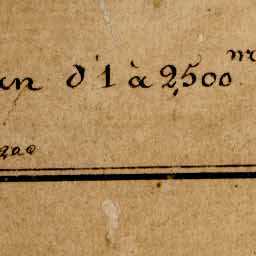 an d'1 à 2,500 m
200